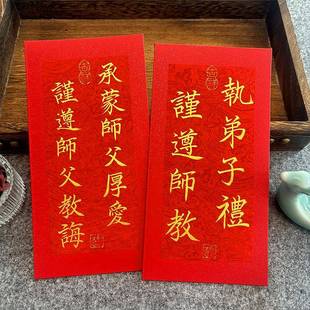 承蒙師父厚愛
謹遵師父教誨
執弟子禮
謹遵師教